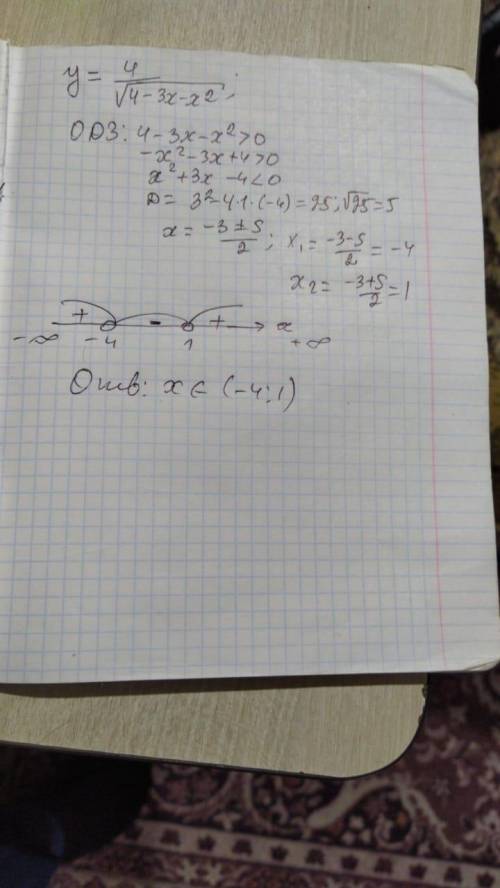 y = 4/√(4-3x-x²);
ОДЗ: 4-3x-x²>0
-x²-3x+4>0
x²+3x-4<0
D= 3²-4·1·(-4)=25; √25=5
x= (-3±5)/2; x₁= (-3-5)/2 = -4
x₂= (-3+5)/2 = 1
+ - + x
-∞ -4 1 +∞
Отв: x∈(-4;1)